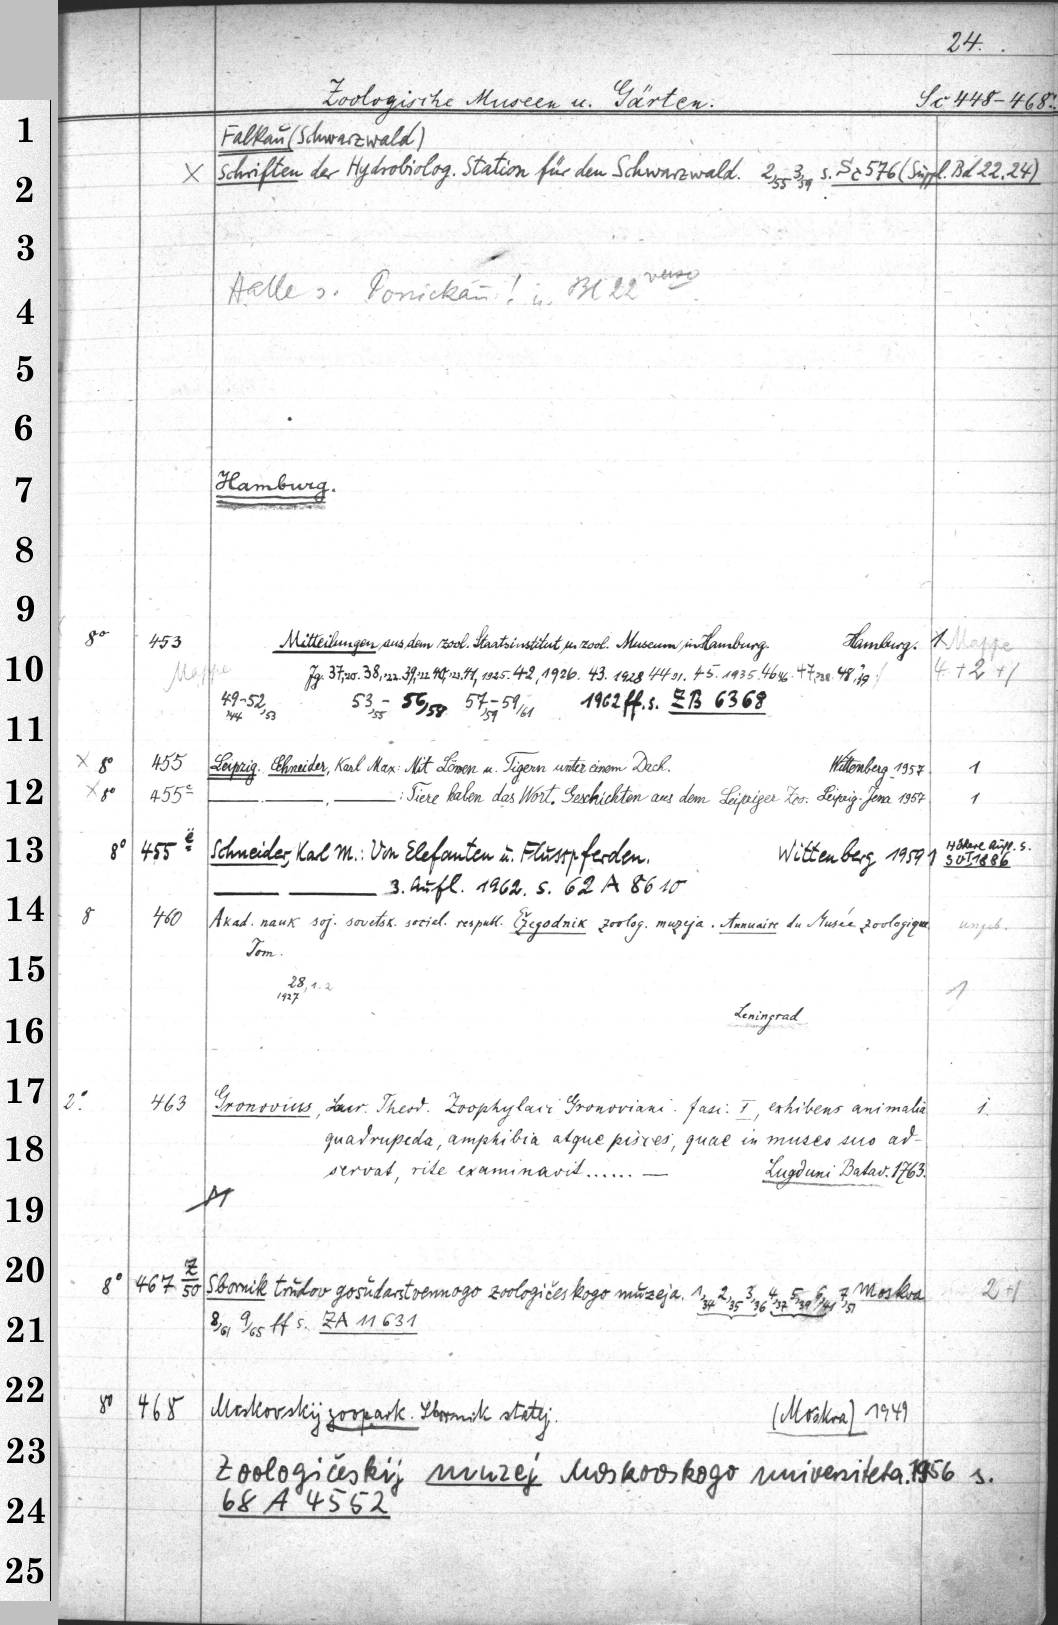 24.
Zoologische Museen u. Gärten. Sc 448-468
1 Falkau (Schwarzwald)
2 X Schriften der Hydrobiolog. Station für den Schwarzwald. 2,55 3,59 s. Sc 576 (Suppl. Bd 22.24)
3
4 Halle s. Ponickau! u. Bl 22 verso
5
6
7 Hamburg.
8
9
8° 453 Mitteilungen aus dem zool. Staatsinstitut u. zool. Museum in Hamburg. Hamburg. 1 Mappe
10 Mappe Jg. 37,20. 38,'22. 39,'22 40,'23. 41, 1925. 42, 1926. 43. 1928 44 31. 45. 1935. 46 36. 47,38. 48,39 4 + 2 + 1
49-52, '44 53 53,55 - 56,58 57,59 - 59/61 1962 ff. s. ZB 6368
11
X 8° 455 Leipzig. Schneider, Karl Max: Mit Löwen u. Tigern unter einem Dach. Wittenberg 1957 1
12 X 8° 455c : Tiere haben das Wort. Geschichten aus dem Leipziger Zoo. Leipzig-Jena 1957 1
13 8° 455 e Schneider, Karl M.: Von Elefanten u. Flusspferden. Wittenberg 1959 1 Höhere Aufl. s. 1886
3. Aufl. 1962. s. 62 A 8610
14 8 460 Akad. nauk soj. sovetsk. social. respubl. Ežegodnik zoolog. muzeja. Annuaire du Musée zoologique ungeb.
Tom.
15 28, 1. 2 1927 1
16 Leningrad
17 2° 463 Gronovius, Laur. Theod. Zoophylacii Gronoviani. fasc. I, exhibens animalia 1.
18 quadrupeda, amphibia atque pisces, quae in museo suo ad-
servat, rite examinavit...... — Lugduni Batav. 1763.
19
20 8° 467 Z/50 Sbornik trudov gosudarstvennogo zoologičeskogo muzeja. 1,34 2,35 3,36 4,37 5,39 6,41 7,51 Moskva 2 + 1
21 8,61 9,65 ff s. ZA 11631
22 8° 468 Moskovskij zoopark. Sbornik statej. [Moskva] 1949
23 Zoologičeskij muzej Moskovskogo universiteta. 1956 s.
24 68 A 4552
25